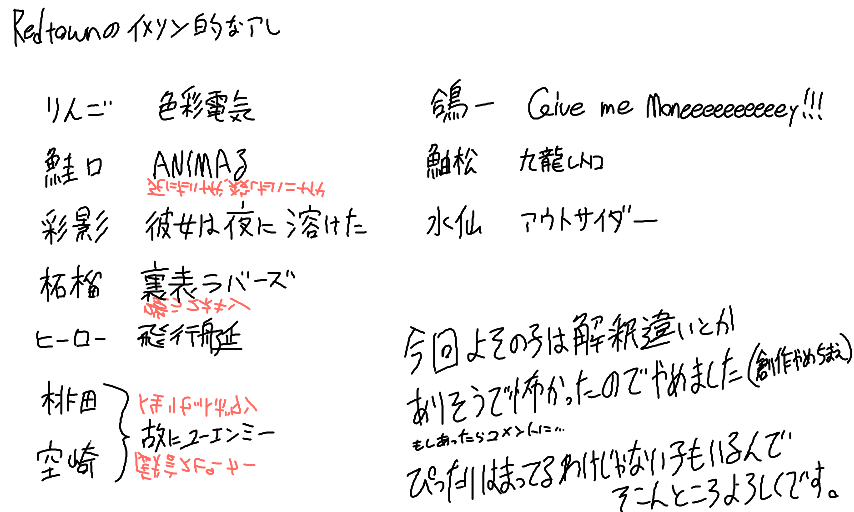 Redtownのイメソン的なアレ
りんご 色彩電気
鮭口 ANIMAる
彩影 彼女は夜に溶けた
柘榴 裏表ラバーズ
ヒーロー 飛行艇
桃田
空崎
故にユーエンミー
鴿一 Give me Moneeeeeeeeeeey!!!
鮋松 九龍レトロ
水仙 アウトサイダー
今回よその子は解釈違いとか
ありそうで怖かったのでやめました(創作やめちまえ)
もしあったらコメントに…
ぴったりはまってるわけじゃない子もいるんで
そこんところよろしくです。